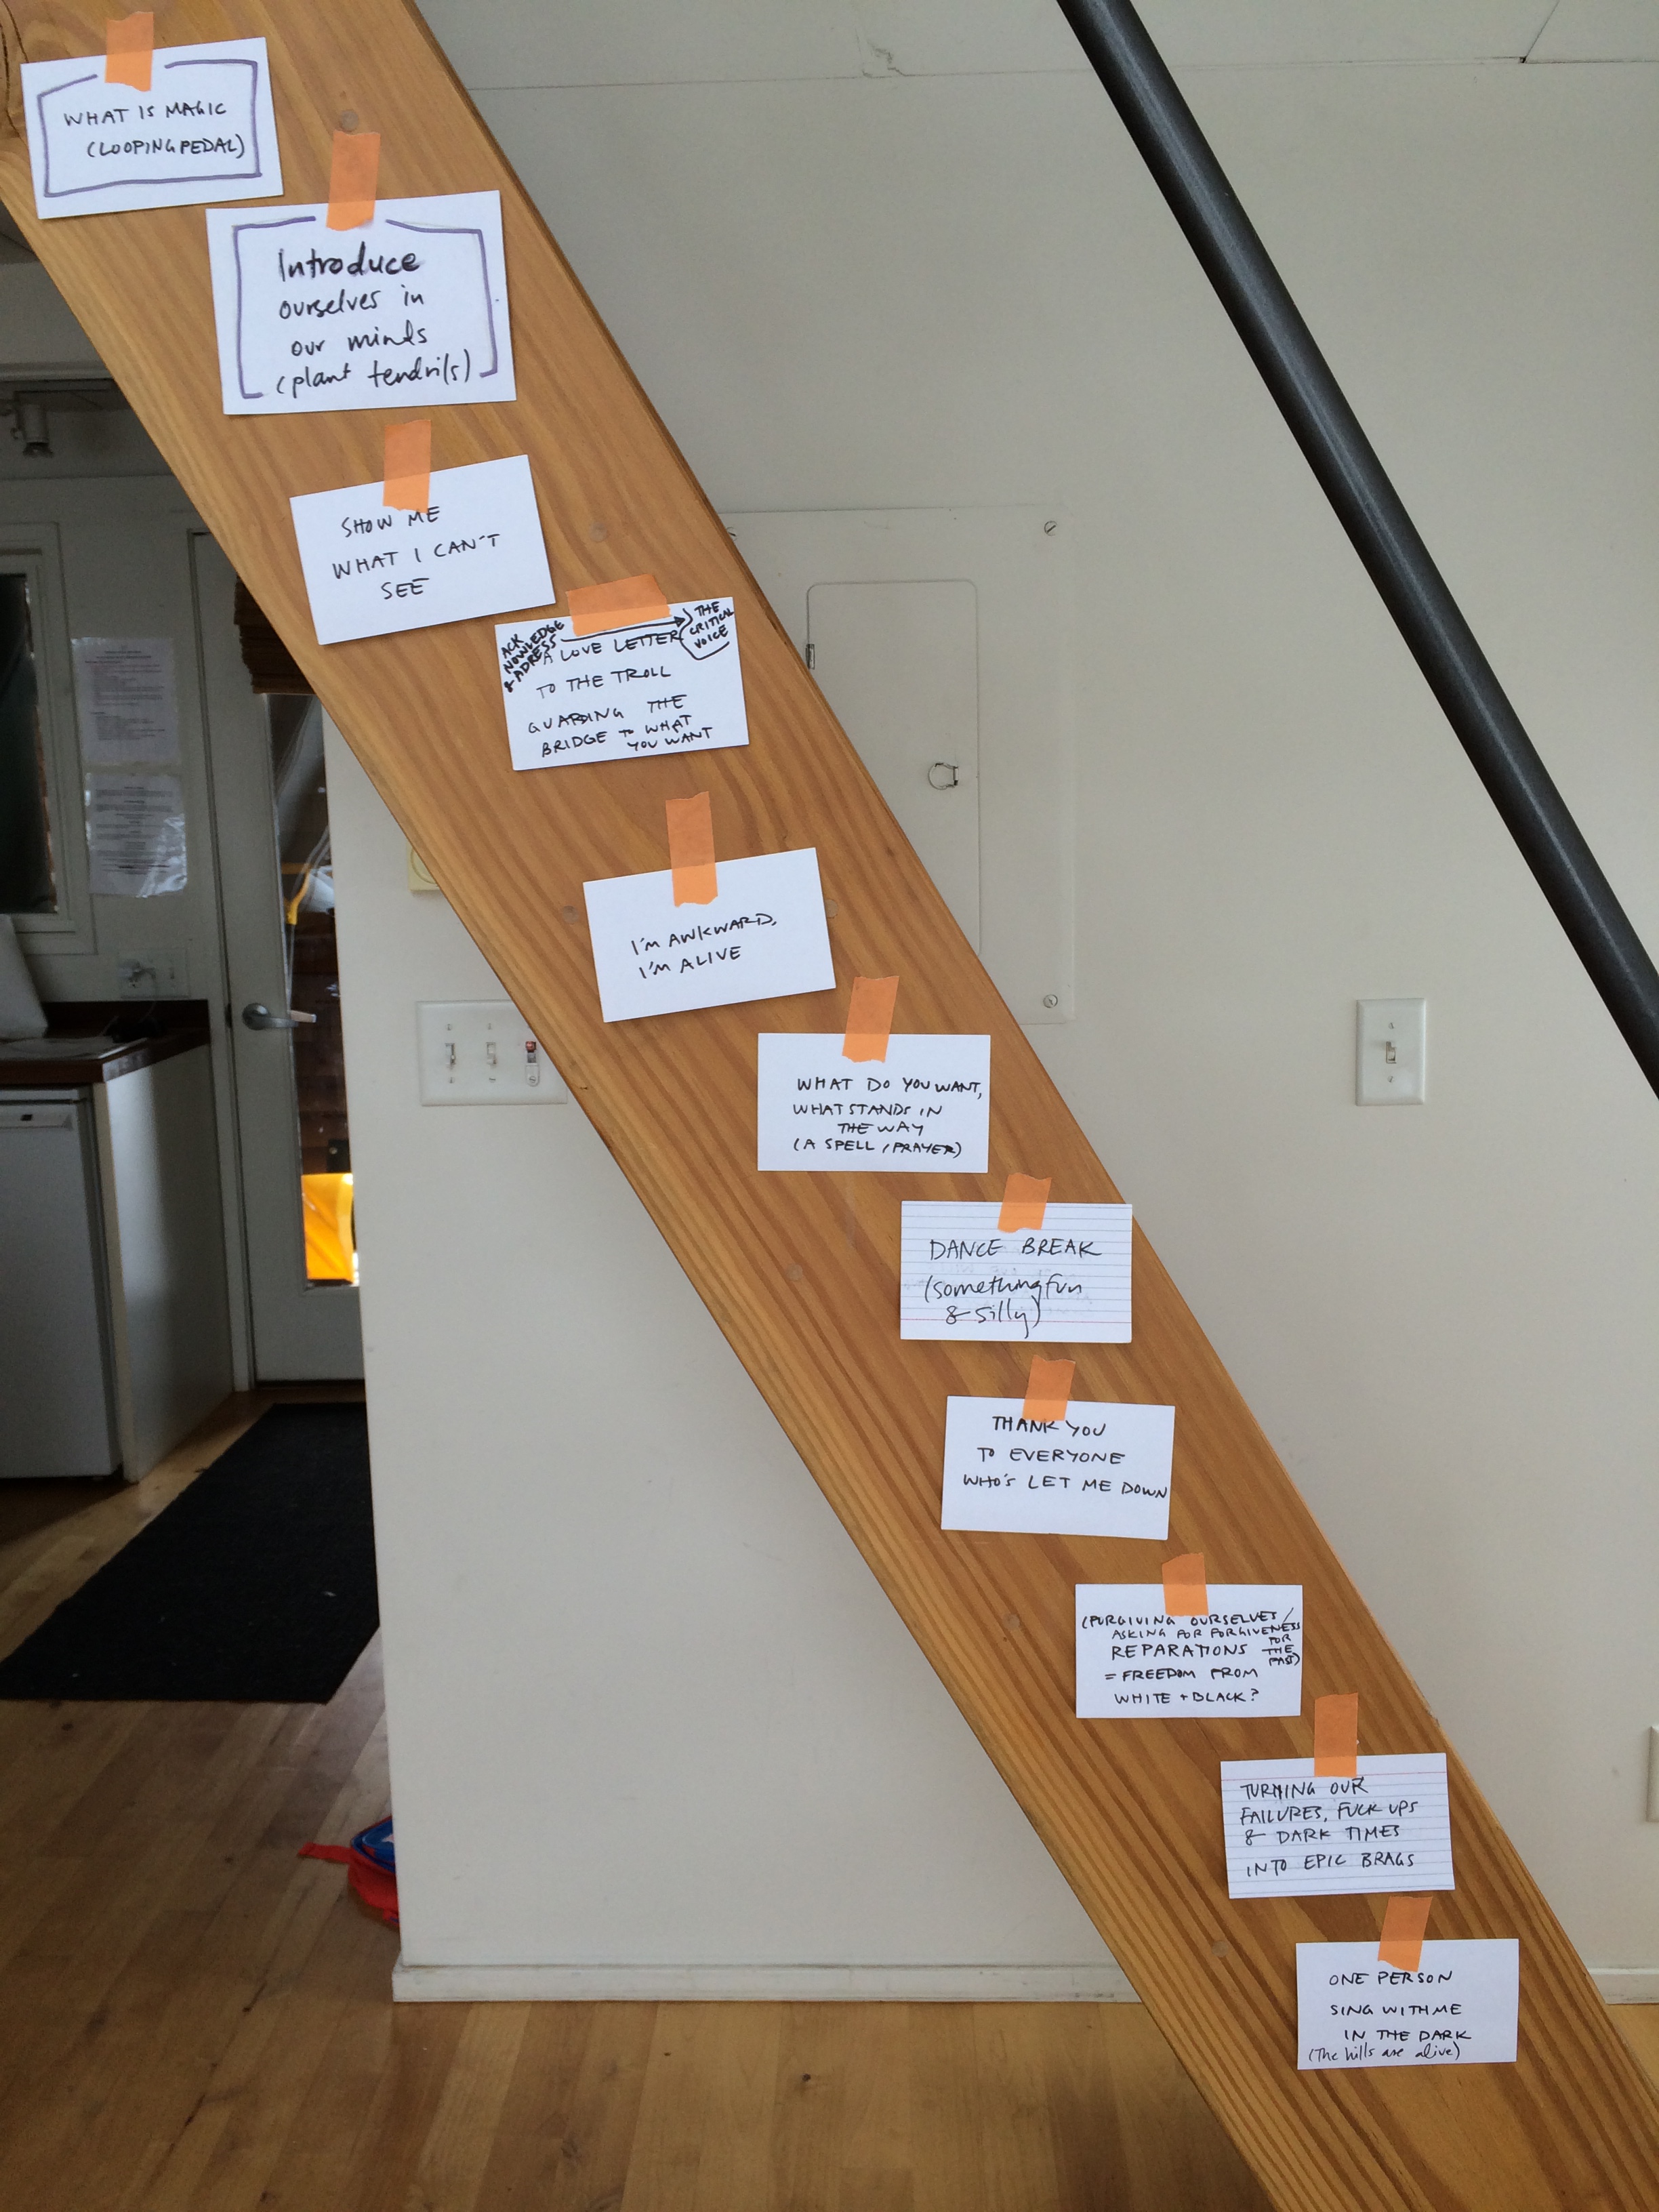 WHAT IS MAGIC
(LOOPING PEDAL)
Introduce
ourselves in
our minds
(plant tendrils)
SHOW ME
WHAT I CAN'T
SEE
ACK
NOWLEDGE
& ADRESS
THE
CRITICAL
VOICE
A LOVE LETTER
TO THE TROLL
GUARDING THE
BRIDGE TO WHAT
YOU WANT
I'M AWKWARD,
I'M ALIVE
WHAT DO YOU WANT,
WHAT STANDS IN
THE WAY
(A SPELL / PRAYER)
DANCE BREAK
(something fun
& silly)
THANK YOU
TO EVERYONE
WHO'S LET ME DOWN
(FORGIVING OURSELVES /
ASKING FOR FORGIVENESS
FOR
THE
PAST)
REPARATIONS
= FREEDOM FROM
WHITE + BLACK?
TURNING OUR
FAILURES, FUCK UPS
& DARK TIMES
INTO EPIC BRAGS
ONE PERSON
SING WITH ME
IN THE DARK
(The hills are alive)